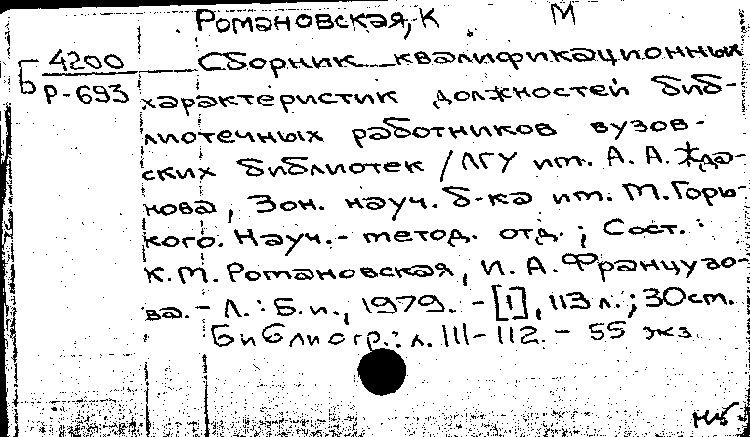 Романовская, К М
Б 4200
Р-693
Сборник квалификационных
характеристик должностей биб-
лиотечных работников вузов-
ских библиотек / ЛГУ им. А. А. Жда-
нова, Зон. науч. б-ка им. М. Горь-
кого. Науч.-метод. отд. ; Сост. :
К. М. Романовская, И. А. Французо-
ва. - Л. : Б. и., 1979. - [1], 113 л. ; 30 см.
Библиогр.: л. 111-112. - 55 экз.